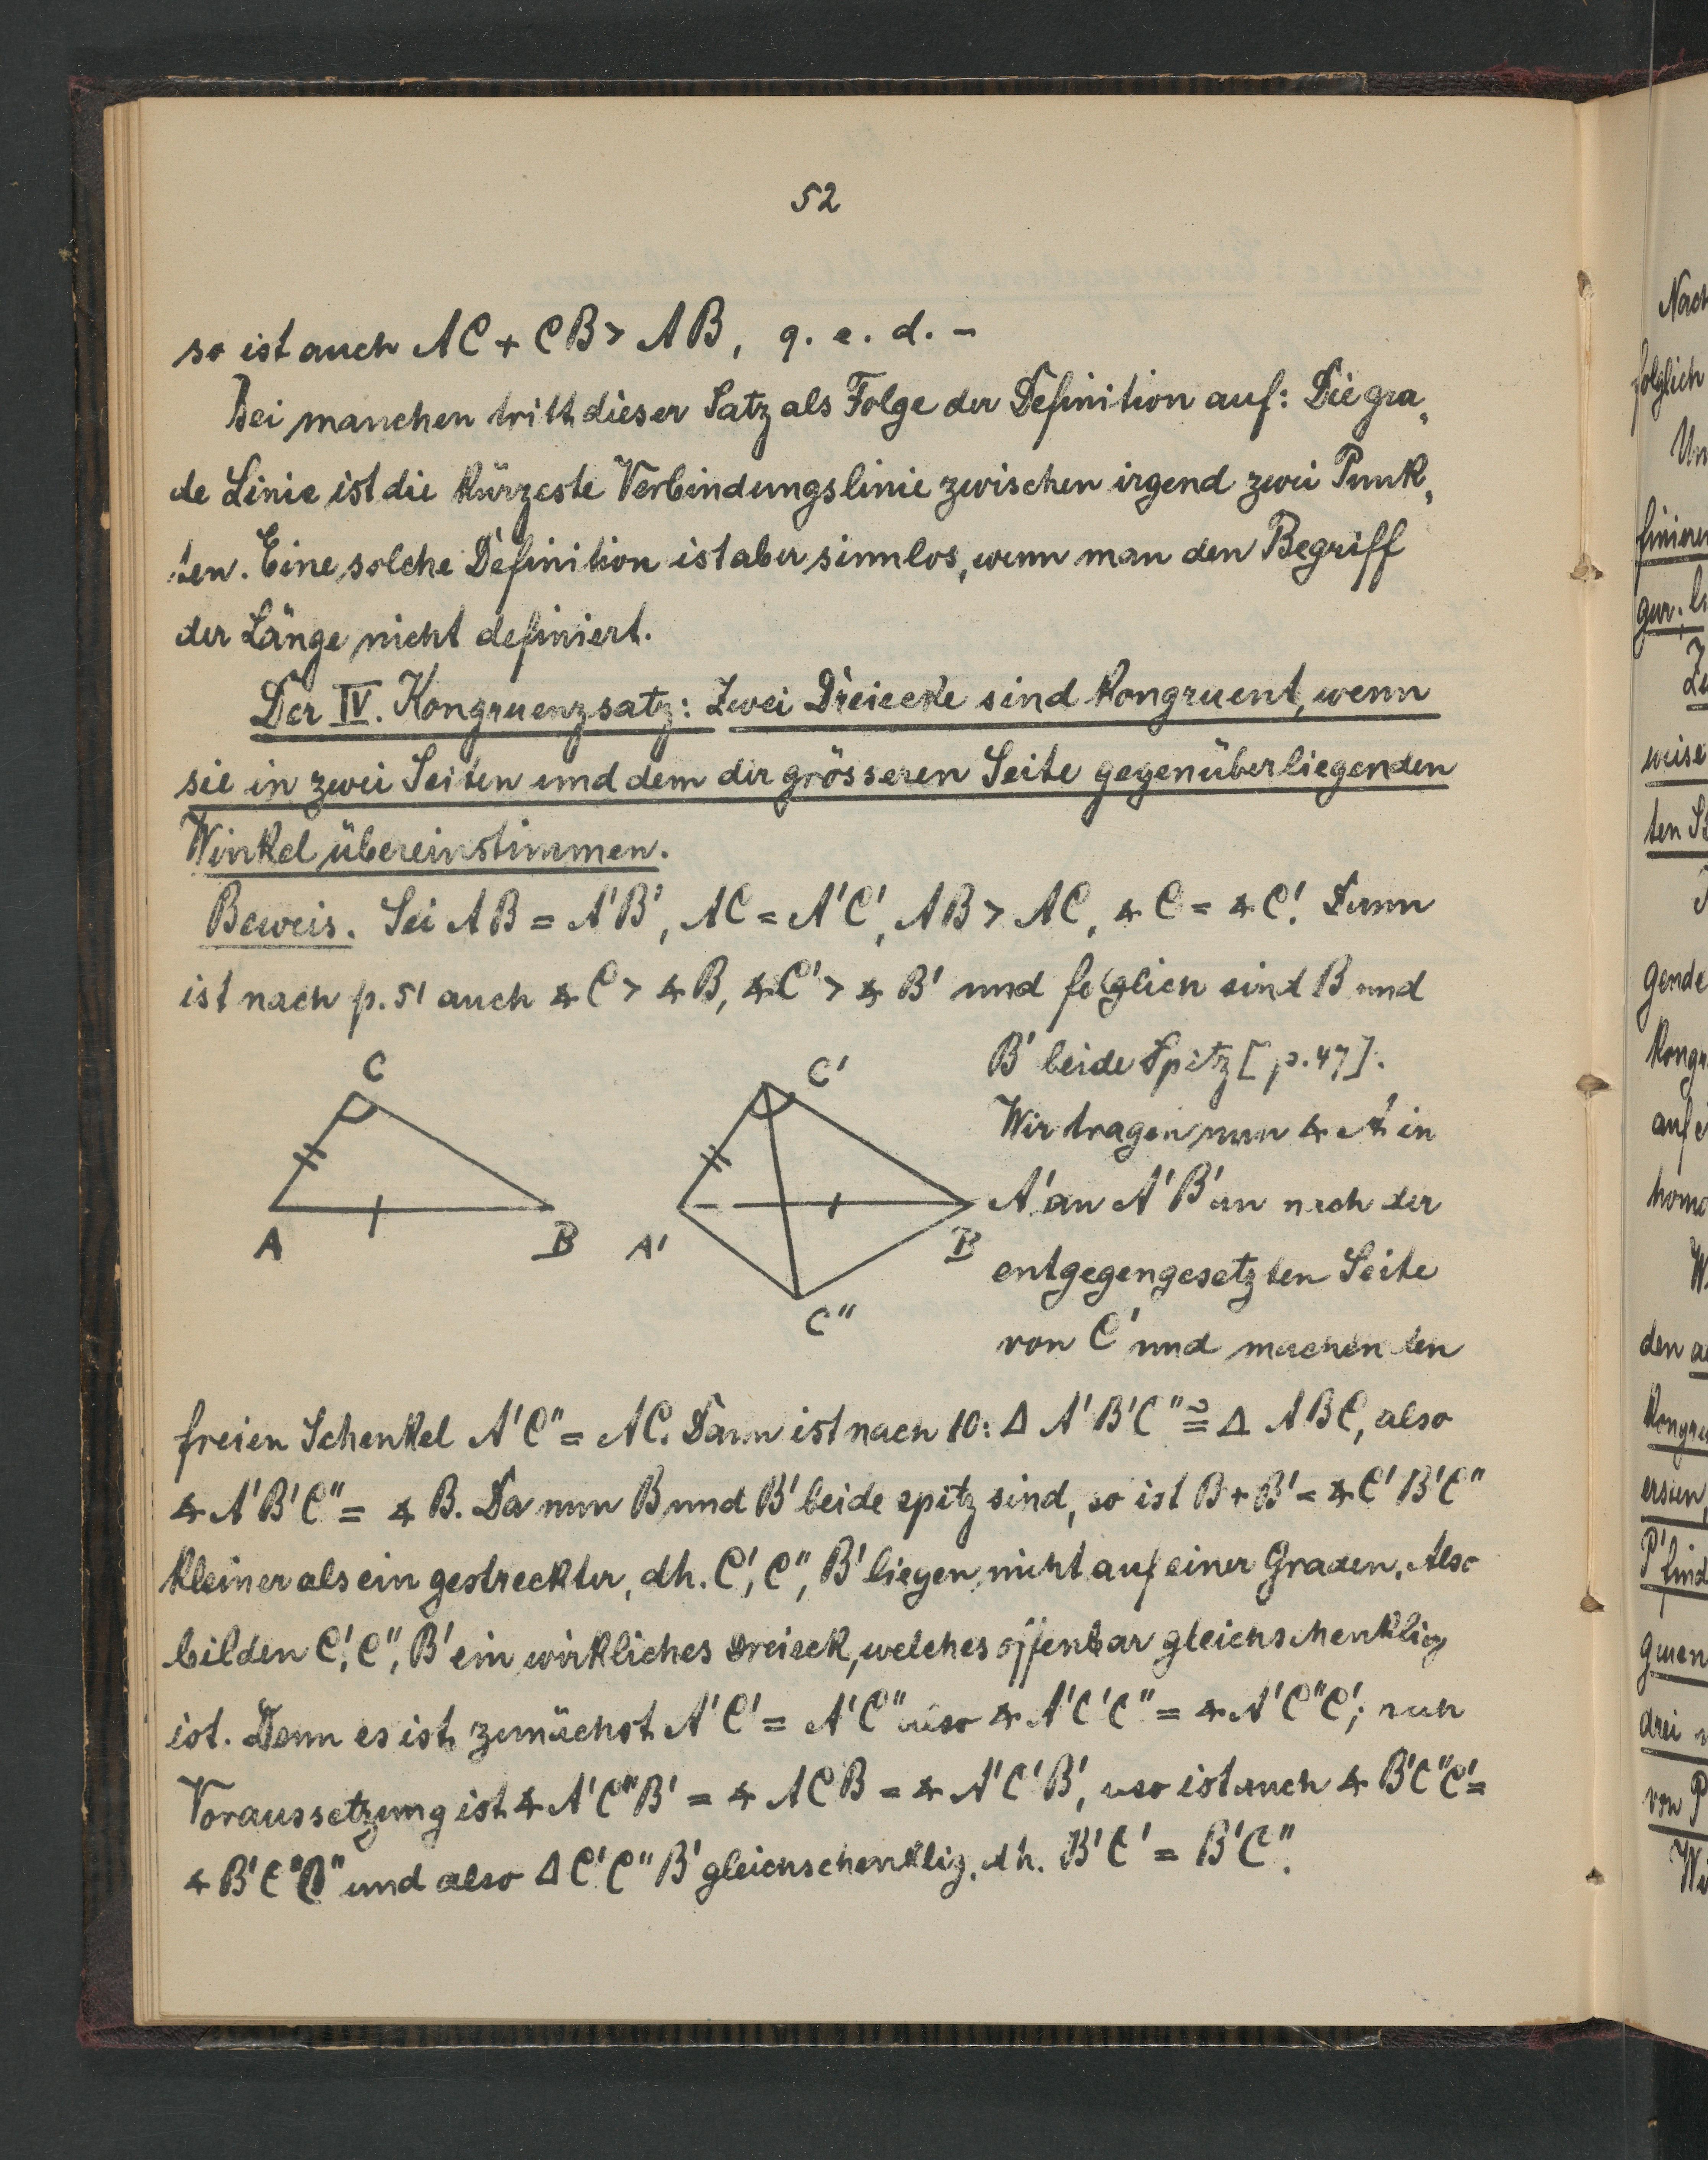 52
so ist auch AC + CB > AB, q. e. d. –
Bei manchen tritt dieser Satz als Folge der Definition auf: Die gra,
de Linie ist die kürzeste Verbindungslinie zwischen irgend zwei Punk,
ten. Eine solche Definition ist aber sinnlos, wenn man den Begriff
der Länge nicht definiert.
Der IV. Kongruenzsatz: Zwei Dreiecke sind kongruent, wenn
sie in zwei Seiten und dem der grösseren Seite gegenüberliegenden
Winkel übereinstimmen.
Beweis. Sei AB = A'B', AC = A'C', AB > AC, ∢ C = ∢ C'. Dann
ist nach p. 51 auch ∢ C > ∢ B, ∢ C' > ∢ B' und folglich sind B und
B' beide Spitz [p. 47].
Wir tragen nun ∢ A in
A' an A'B' an nach der
entgegengesetzten Seite
von C' und machen den
C
A
B
C'
A'
B
C''
freien Schenkel A'C'' = AC. Dann ist nach 10: Δ A'B'C'' ≅ Δ ABC, also
∢ A'B'C'' = ∢ B. Da nun B und B' beide spitz sind, so ist B + B' = ∢ C'B'C''
kleiner als ein gestreckter, dh. C', C'', B' liegen nicht auf einer Graden. Also
bilden C', C'', B' ein wirkliches Dreieck, welches offenbar gleichschenklig
ist. Denn es ist zunächst A'C' = A'C'' also ∢ A'C'C'' = ∢ A'C''C'; nach
Voraussetzung ist ∢ A'C''B' = ∢ ACB = ∢ A'C'B', also ist auch ∢ B'C''C' =
∢ B'C'C'' und also Δ C'C''B' gleichschenklig, dh. B'C' = B'C''.
Nach
folglich
Un
finieren
gur.
weise
ten
gende
kongr
auf
W
den
Kongru
P' find
drei
von P
Wi